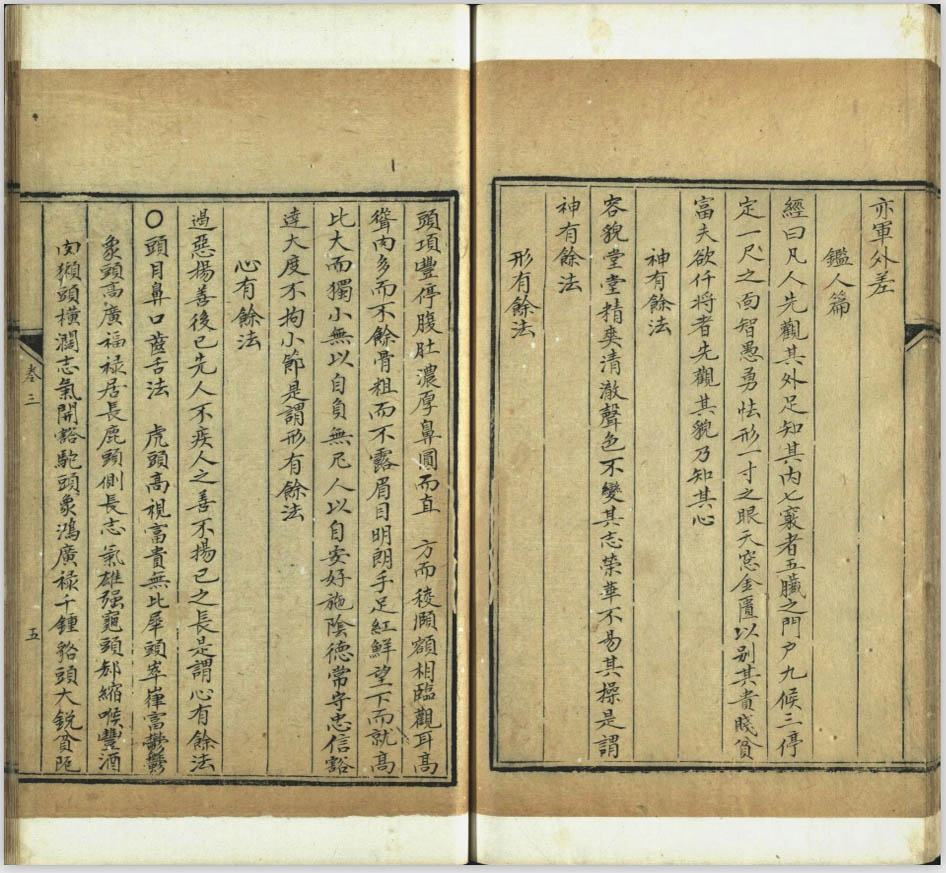 亦軍外差
鑑人篇
經曰凡人先觀其外足知其内七竅者五臟之門戶九候三停
定一尺之面智愚勇怯形一寸之眼天窓金匱以別其貴賤貧
富夫欲仟将者先觀其貌乃知其心
神有餘法
容貌堂堂精爽清澈聲色不變其志榮華不易其操是謂
神有餘法
形有餘法
頭項豐停腹肚濃厚鼻圓而直 方而稜頤額相臨觀耳高
聳肉多而不餘骨粗而不露眉目明朗手足紅鮮望下而就高
比大而獨小無以自負無凡人以自安好施陰德常守忠信豁
達大度不拘小節是謂形有餘法
心有餘法
過惡揚善後己先人不疾人之善不揚己之長是謂心有餘法
〇頭目鼻口齒舌法 虎頭高視富貴無比犀頭崒嵂富鬱鬱
象頭高廣福禄居長鹿頭側長志氣雄强龜頭却縮喉豐酒
肉獺頭橫濶志氣開豁駝頭象鴻廣禄千鍾貉頭大銳貧阨
卷三
五